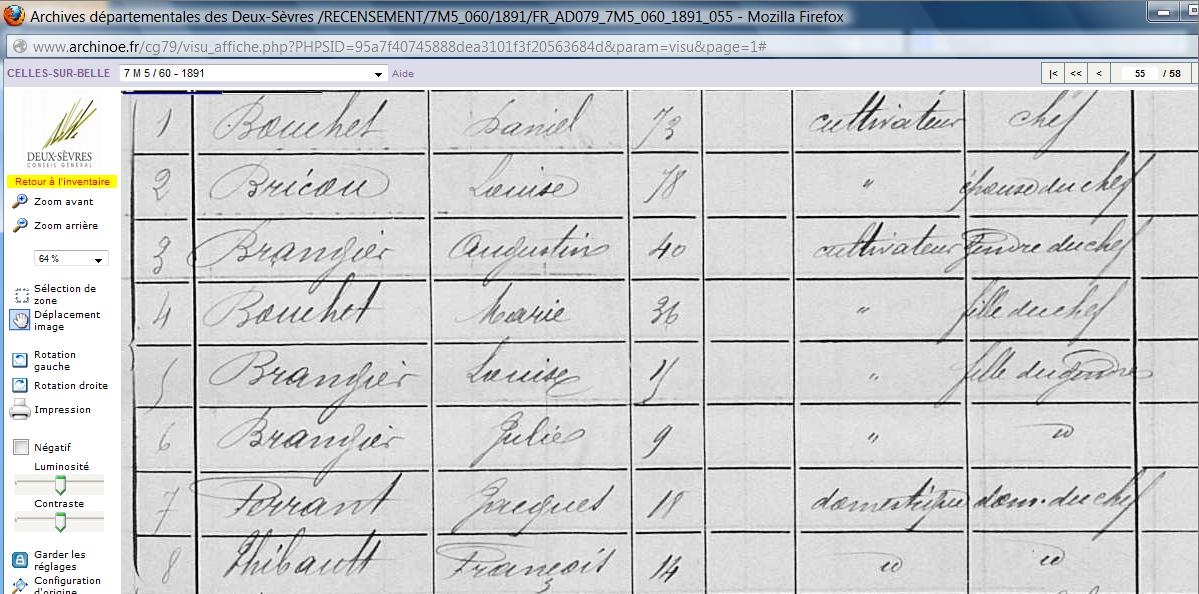 Archives départementales des Deux-Sèvres /RECENSEMENT/7M5_060/1891/FR_AD079_7M5_060_1891_055 - Mozilla Firefox
www.archinoe.fr/cg79/visu_affiche.php?PHPSID=95a7f40745888dea3101f3f20563684d&param=visu&page=1#
CELLES-SUR-BELLE 7 M 5 / 60 - 1891 Aide |< << < 55 / 58
DEUX-SÈVRES
CONSEIL GÉNÉRAL
Retour à l'inventaire
Zoom avant
Zoom arrière
64 %
Sélection de
zone
Déplacement
image
Rotation
gauche
Rotation droite
Impression
Négatif
Luminosité
Contraste
Garder les
réglages
Configuration
d'origine
1 Bouchet Daniel 73 cultivateur chef
2 Bricou Louise 78 " épouse du chef
3 Brangier Augustin 40 cultivateur gendre du chef
4 Bouchet Marie 36 " fille du chef
5 Brangier Louise 15 " fille du gendre
6 Brangier Julie 9 " id
7 Ferrant Jacques 18 domestique dom. du chef
8 Thibault François 14 id id